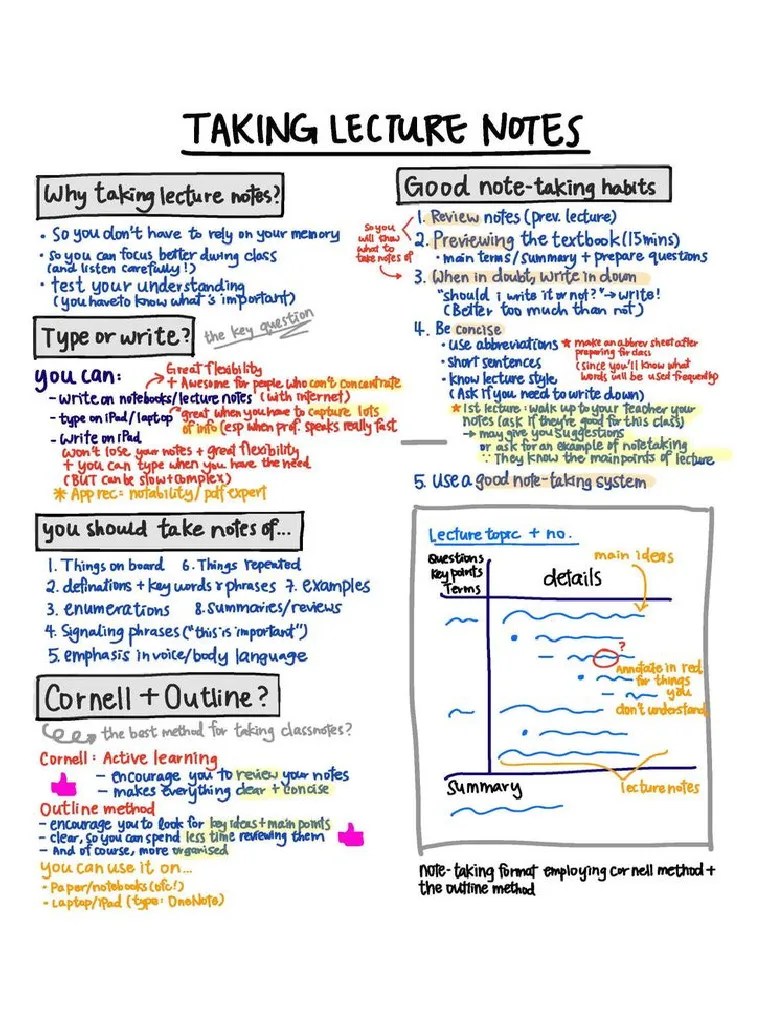 TAKING LECTURE NOTES
Why taking lecture notes?
• So you don't have to rely on your memory
• so you can focus better during class
(and listen carefully!)
• test your understanding
(you have to know what's important)
Type or write?
the key question
you can:
Great flexibility
+ Awesome for people who can't concentrate
- write on notebooks/lecture notes (with internet)
- type on iPad/laptop great when you have to capture lots
of info (esp when prof. speaks really fast
- write on iPad
won't lose your notes + great flexibility
+ you can type when you have the need
(BUT can be slow + complex)
* App rec: notability/pdf expert
you should take notes of...
1. Things on board 6. Things repeated
2. definations + key words & phrases 7. examples
3. enumerations 8. summaries/reviews
4. Signaling phrases ("this is important")
5. emphasis in voice/body language
Cornell + Outline?
the best method for taking classnotes?
Cornell: Active learning
- encourage you to review your notes
- makes everything clear + concise
Outline method
- encourage you to look for key ideas + main points
- clear, so you can spend less time reviewing them
- And of course, more organised
you can use it on...
- Paper/notebooks (ofc!)
- Laptop/iPad (type: OneNote)
Good note-taking habits
So you
will know
what to
take notes of
1. Review notes (prev. lecture)
2. Previewing the textbook (15mins)
• main terms/summary + prepare questions
3. When in doubt, write in down
"should i write it or not?" → write!
(Better too much than not)
4. Be concise
• Use abbreviations * make an abbrev sheet after
preparing for class
• short sentences (since you'll know what
words will be used frequently)
• know lecture style
(Ask if you need to write down)
* 1st lecture: walk up to your teacher your
notes (ask if they're good for this class)
→ may give you suggestions
or ask for an example of notetaking
∵ They know the main points of lecture
5. Use a good note-taking system
Lecture topic + no.
Questions
Key points
Terms
details
main ideas
?
Annotate in red
for things
you
don't understand
Summary
lecture notes
note-taking format employing cornell method +
the outline method